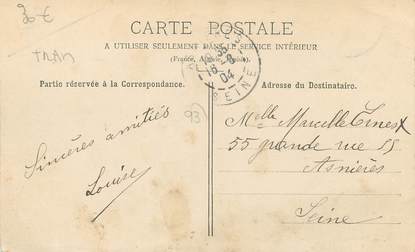 30€
TRAM
CARTE POSTALE
A UTILISER SEULEMENT DANS LE SERVICE INTÉRIEUR
(France, Algérie, Tunisie).
18 -8
04
SEINE
Partie réservée à la Correspondance.
Adresse du Destinataire.
93
Sincères amitiés
Louise
Melle Marcelle
55 grande rue 55
Asnières
Seine